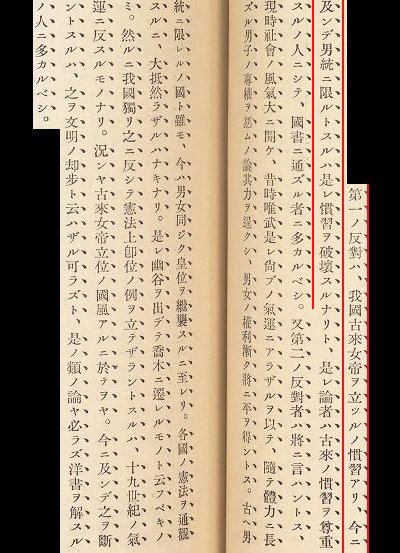 第一ノ反對ハ、我國古來女帝ヲ立ツルノ慣習アリ、今ニ
及ンデ男統ニ限ルトスルハ是レ慣習ヲ破壞スルナリト、是レ論者ハ古來ノ慣習ヲ尊重
スルノ人ニシテ、國書ニ通ズル者ニ多カルベシ。又第二ノ反對者ハ將ニ言ハントス、
現時社會ノ風氣大ニ開ケ、昔時唯武是レ尙ブノ氣運ニアラザルヲ以テ、隨テ體力ニ長
ズル男子ノ專權ヲ惡ムノ論其力ヲ逞クシ、男女ノ權利漸ク將ニ平ヲ得ントス。古ヘ男
統ニ限レルノ國ト雖モ、今ハ男女同ジク皇位ヲ繼襲スルニ至レリ。各國ノ憲法ヲ通觀
スルニ、大抵然ラザルハナキナリ。是レ幽谷ヲ出デテ喬木ニ遷レルモノト云フベキノ
ミ。然ルニ我國獨リ之ニ反シテ憲法上卽位ノ例ヲ立テザラントスルハ、十九世紀ノ氣
運ニ反スルモノナリ。況ンヤ古來女帝立位ノ國風アルニ於テヲヤ。今ニ及ンデ之ヲ斷
ントスルハ、之ヲ文明ノ却步ト云ハザル可ラズト、是ノ類ノ論ヤ必ラズ洋書ヲ解スル
ノ人ニ多カルベシ。